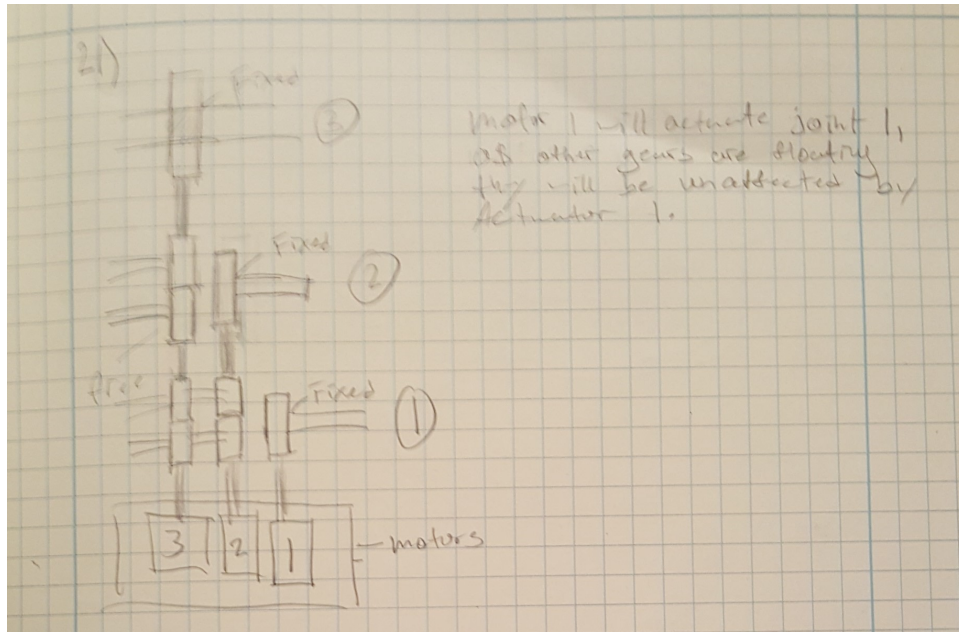 21)
Fixed
③
motor 1 will actuate joint 1,
as other gears are floating
they will be unaffected by
Actuator 1.
Fixed
②
free
Fixed
①
3 2 1
motors